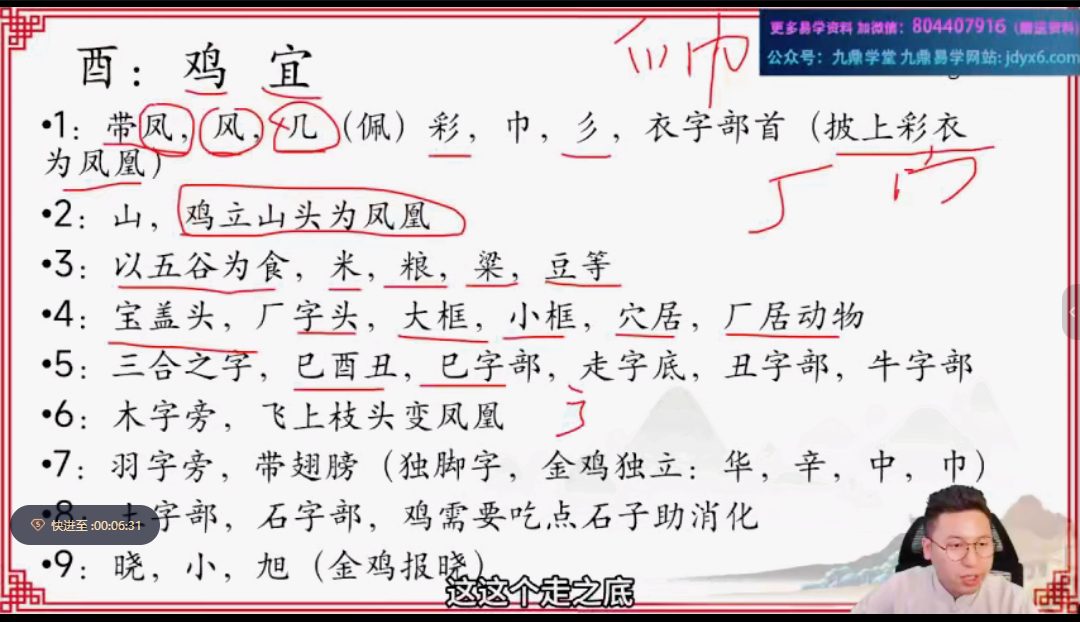 更多易学资料 加微信：804407916（赠送资料）
公众号：九鼎学堂 九鼎易学网站：jdyx6.com
酉：鸡 宜
•1：带凤，风，几（佩）彩，巾，彡，衣字部首（披上彩衣
为凤凰）
•2：山，鸡立山头为凤凰
•3：以五谷为食，米，粮，粱，豆等
•4：宝盖头，厂字头，大框，小框，穴居，厂居动物
•5：三合之字，巳酉丑，巳字部，走字底，丑字部，牛字部
•6：木字旁，飞上枝头变凤凰
•7：羽字旁，带翅膀（独脚字，金鸡独立：华，辛，中，巾）
•8：土字部，石字部，鸡需要吃点石子助消化
快进至：00:06:31
•9：晓，小，旭（金鸡报晓）
这这个走之底